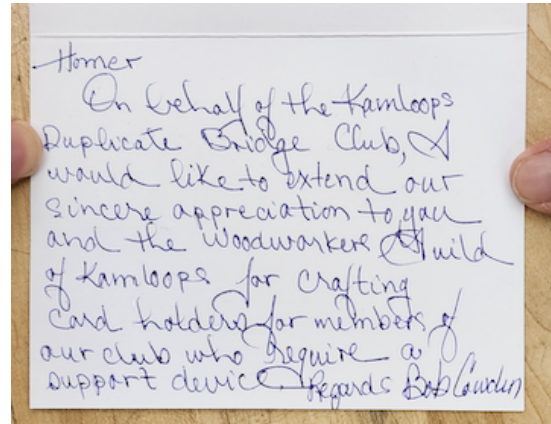 Homer
On behalf of the Kamloops
Duplicate Bridge Club, I
would like to extend our
sincere appreciation to you
and the Woodworkers Guild
of Kamloops for crafting
card holders for members of
our club who require a
support device Regards Bob